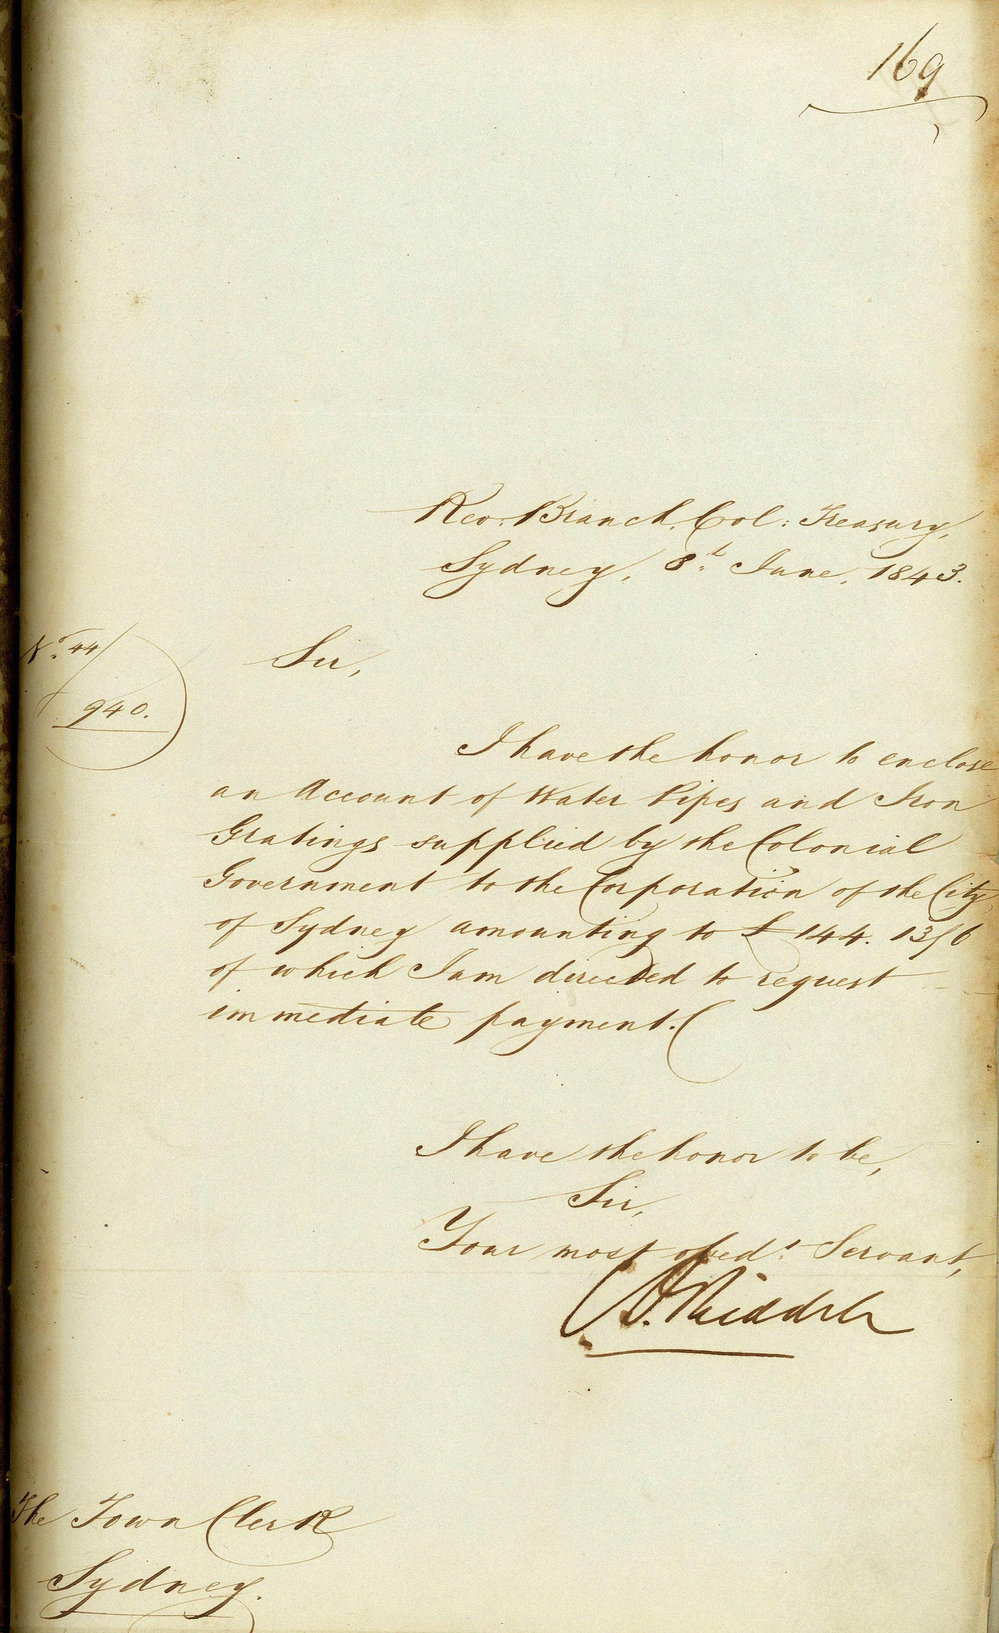 169
Rev. Branch. Col: Treasury,
Sydney, 8th June, 1843.
No. 44/
940.
Sir,
I have the honor to enclose
an Account of Water Pipes and Iron
Gratings supplied by the Colonial
Government to the Corporation of the City
of Sydney amounting to £144. 13/6
of which I am directed to request
immediate payment.
I have the honor to be,
Sir,
Your most obedt. Servant,
C. D. Riddell
The Town Clerk
Sydney.